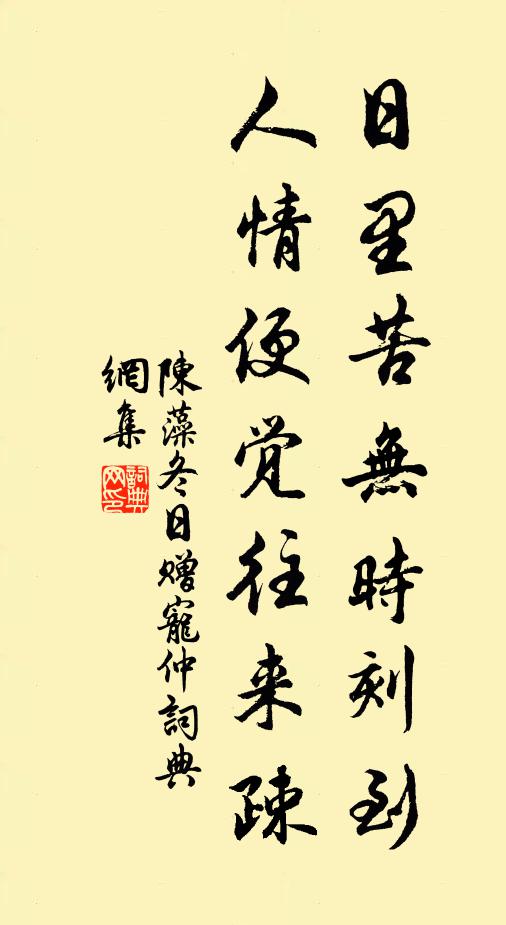 日里苦無時刻到
人情便覺往来疎
陳藻冬日赠寵仲詞典
網集
詞典
网印